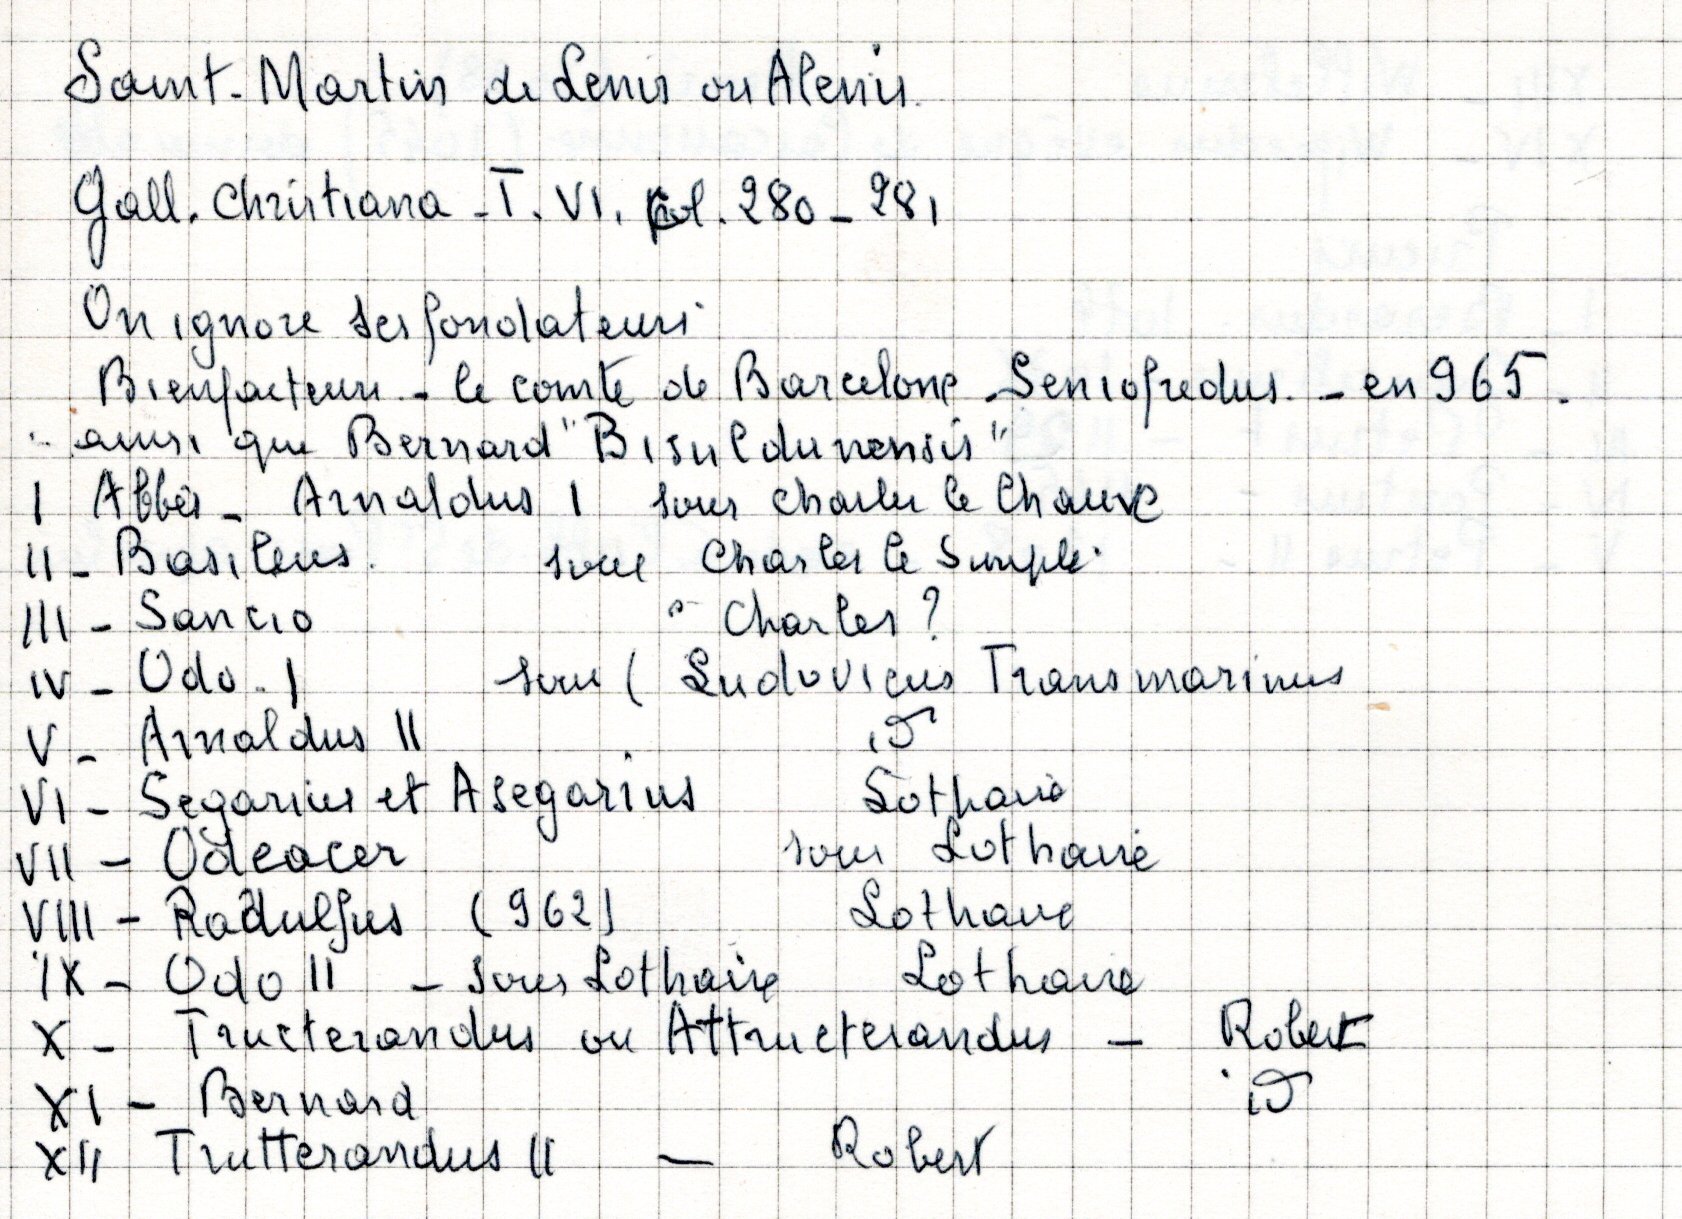 Saint-Martin de Lenis ou Alenis.
Gall. Christiana - T. VI. col. 280-281
On ignore ses fondateurs
Bienfacteurs - le comte de Barcelone - Seniofredus. - en 965.
ainsi que Bernard "Bisuldunensis"
I Abbés - Arnaldus I sous Charles le Chauve
II - Basileus. sous Charles le Simple
III - Sancio " Charles ?
IV - Odo. I sous ( Ludovicus Transmarinus
V - Arnaldus II id
VI - Segarius et Asegarius Lothaire
VII - Odeacer sous Lothaire
VIII - Radulfus (962) Lothaire
IX - Odo II - sous Lothaire Lothaire
X - Tructerandus ou Attructerandus - Robert
XI - Bernard id
XII Trutterandus II - Robert